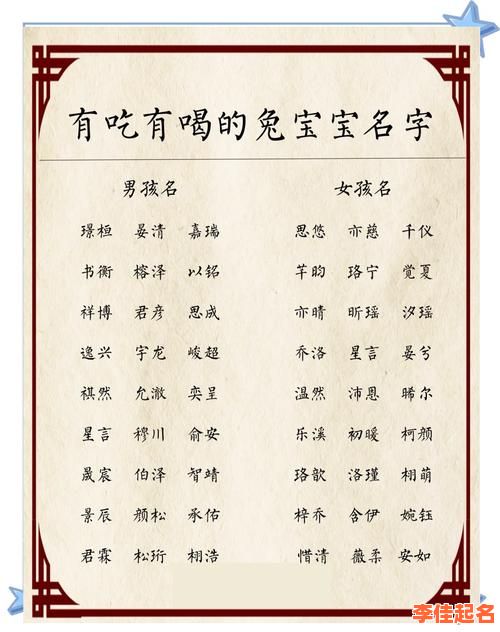 有吃有喝的兔宝宝名字
男孩名 女孩名
璟桓 晏清 嘉瑞 思悠 亦慈 千仪
书衡 榕泽 以铭 芊昀 珞宁 觉夏
祥博 君彦 思成 亦晴 昕瑶 汐瑶
逸兴 宇龙 峻超 乔洛 星言 晏兮
祺然 允澈 奕呈 温然 沛恩 晞尔
星言 穆川 俞安 乐溪 初暖 柯颜
晟宸 伯泽 智靖 珞歆 洛瑾 栩萌
景辰 颜松 承佑 梓乔 含伊 婉钰
君霖 松珩 栩浩 惜清 薇柔 安如
李佳起名